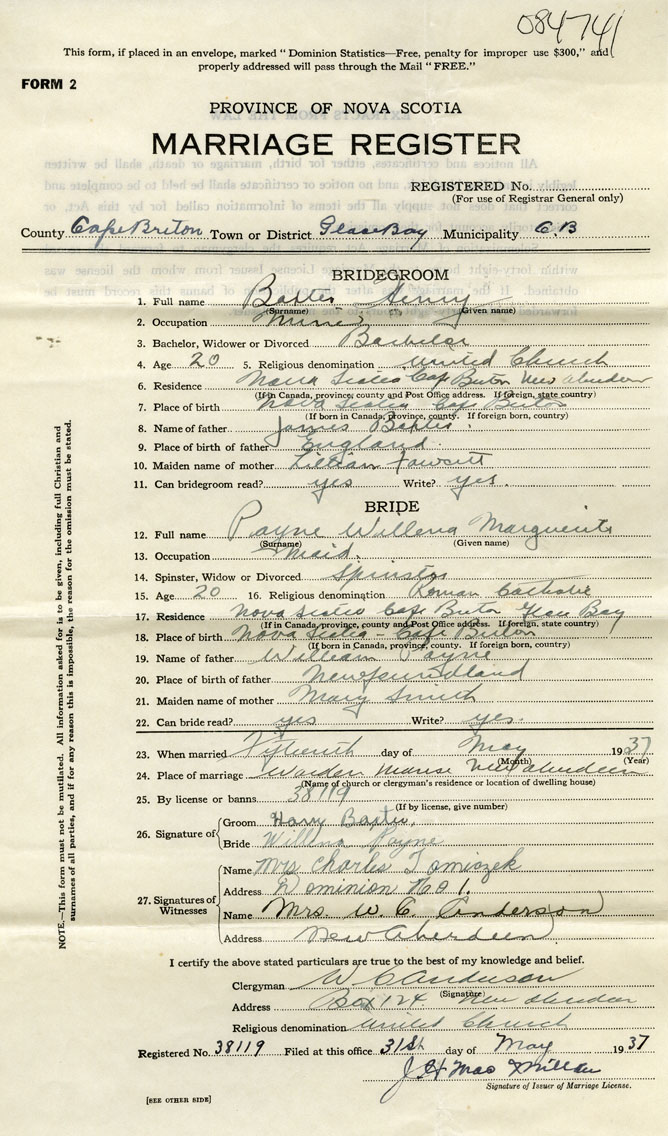 084741
This form, if placed in an envelope, marked "Dominion Statistics—Free, penalty for improper use $300," and
properly addressed will pass through the Mail "FREE."
FORM 2
PROVINCE OF NOVA SCOTIA
MARRIAGE REGISTER
REGISTERED No.
(For use of Registrar General only)
County Cape Breton Town or District Glace Bay Municipality C.B
BRIDEGROOM
1. Full name Baxter Henry
(Surname) (Given name)
2. Occupation Miner
3. Bachelor, Widower or Divorced Bachelor
4. Age 20 5. Religious denomination United Church
6. Residence Nova Scotia Cape Breton New Aberdeen
(If in Canada, province, county and Post Office address. If foreign, state country)
7. Place of birth Nova Scotia Cape Breton
(If born in Canada, province, county. If foreign born, country)
8. Name of father James Baxter
9. Place of birth of father England
10. Maiden name of mother Lillian Fawcett
11. Can bridegroom read? yes Write? yes.
BRIDE
12. Full name Payne Willena Marguerite
(Surname) (Given name)
13. Occupation Maid.
14. Spinster, Widow or Divorced Spinster
15. Age 20 16. Religious denomination Roman Catholic
17. Residence Nova Scotia Cape Breton Glace Bay
(If in Canada, province, county and Post Office address. If foreign, state country)
18. Place of birth Nova Scotia - Cape Breton
(If born in Canada, province, county. If foreign born, country)
19. Name of father William Payne
20. Place of birth of father Newfoundland
21. Maiden name of mother Mary Smith
22. Can bride read? yes Write? yes.
23. When married Fifteenth day of May 1937
(Month) (Year)
24. Place of marriage Warden Manse New Aberdeen
(Name of church or clergyman's residence or location of dwelling house)
25. By license or banns 38119
(If by license, give number)
26. Signature of Groom Harry Baxter
Bride Willena Payne
27. Signatures of Witnesses Name Mrs Charles Tomiczek
Address Dominion No 1.
Name Mrs. W. C. Anderson
Address New Aberdeen
I certify the above stated particulars are true to the best of my knowledge and belief.
Clergyman W C Anderson
(Signature)
Address Box 124 New Aberdeen
Religious denomination United Church
Registered No. 38119 Filed at this office 31st day of May 1937
J H Mac Millan
Signature of Issuer of Marriage License.
[SEE OTHER SIDE]
NOTE.—This form must not be mutilated. All information asked for is to be given, including full Christian and
surnames of all parties, and if for any reason this is impossible, the reason for the omission must be stated.